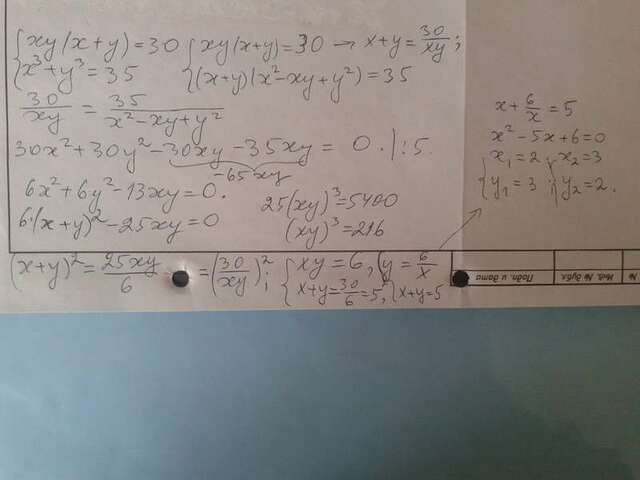 {xy(x+y)=30 {xy(x+y)=30 → x+y=30/xy;
{x³+y³=35 {(x+y)(x²-xy+y²)=35
30/xy = 35/(x²-xy+y²)
30x²+30y²-30xy-35xy = 0. |:5.
-65xy
6x²+6y²-13xy=0.
6(x+y)²-25xy=0
25(xy)³=5400
(xy)³=216
(x+y)²=25xy/6 =(30/xy)²; {xy=6, {y=6/x
{x+y=30/6=5, {x+y=5
x+6/x=5
x²-5x+6=0
{x₁=2, {x₂=3
{y₁=3 {y₂=2.
Подп. и дата
Инв. № дубл.
№